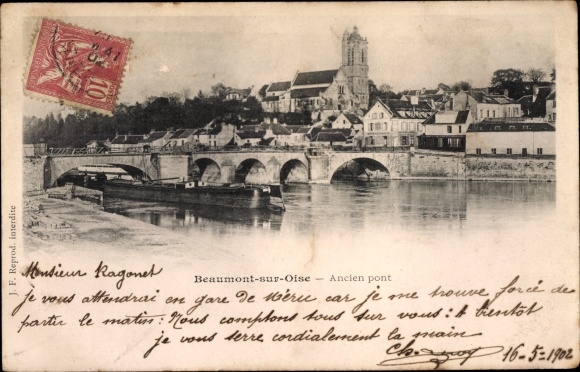 10
J. F. Reprod. interdite
Beaumont-sur-Oise — Ancien pont
Monsieur Ragonet
je vous attendrai en gare de Méru car je me trouve forcé de
partir le matin : Nous comptons tous sur vous : A bientôt
je vous serre cordialement la main
16-5-1902